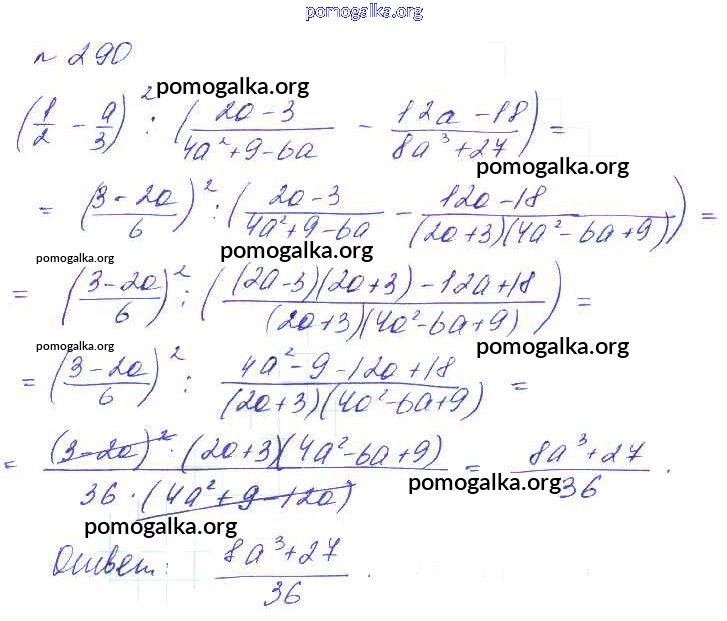 pomogalka.org
№ 290
pomogalka.org
(1/2 - a/3)² : ((2a-3)/(4a²+9-6a) - (12a-18)/(8a³+27)) =
pomogalka.org
= ((3-2a)/6)² : ((2a-3)/(4a²+9-6a) - (12a-18)/((2a+3)(4a²-6a+9))) =
pomogalka.org pomogalka.org
= ((3-2a)/6)² : (((2a-3)(2a+3)-12a+18)/((2a+3)(4a²-6a+9))) =
pomogalka.org pomogalka.org
= ((3-2a)/6)² : (4a²-9-12a+18)/((2a+3)(4a²-6a+9)) =
= ((3-2a)²·(2a+3)(4a²-6a+9))/(36·(4a²+9-12a)) = (8a³+27)/36.
pomogalka.org
pomogalka.org
Ответ: (8a³+27)/36.